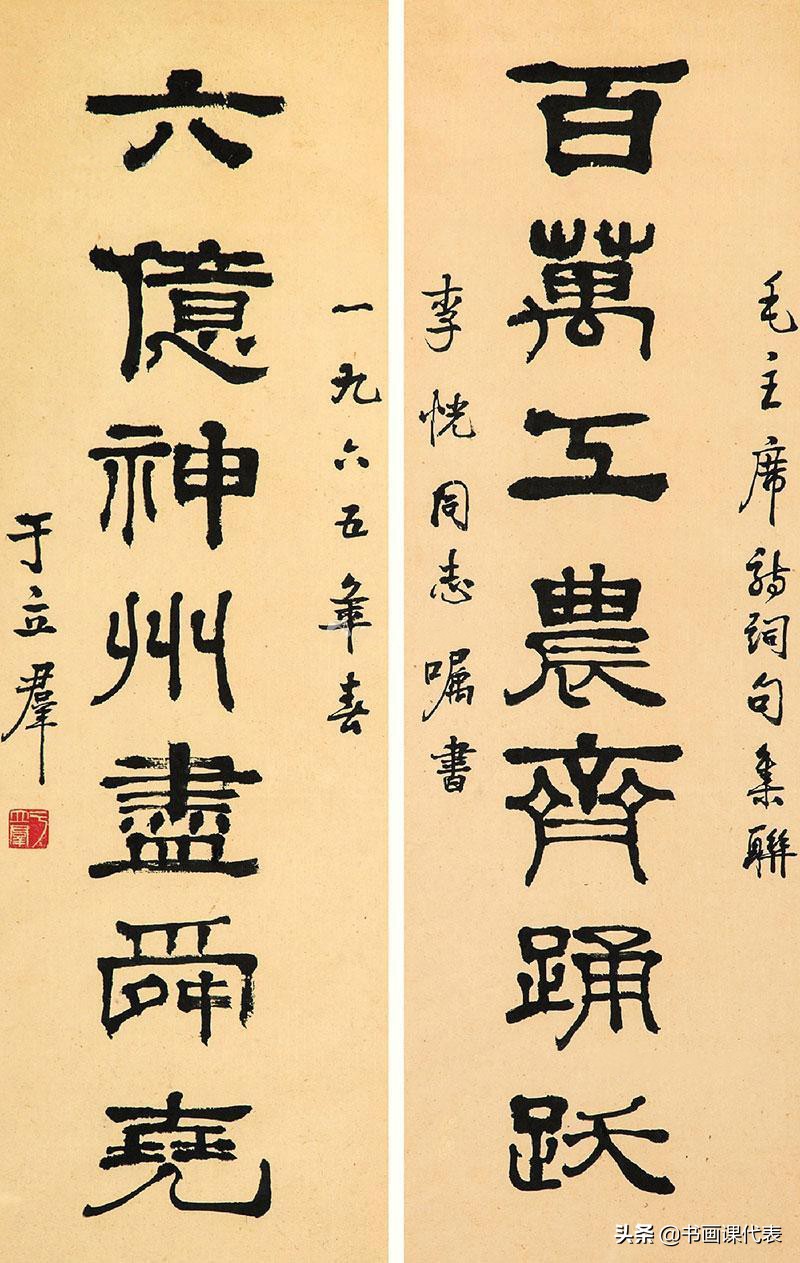 毛主席詩詞句集聯
百萬工農齊踊跃
李恍同志嘱書
一九六五年春
六億神州盡舜堯
于立羣
头条 @书画课代表